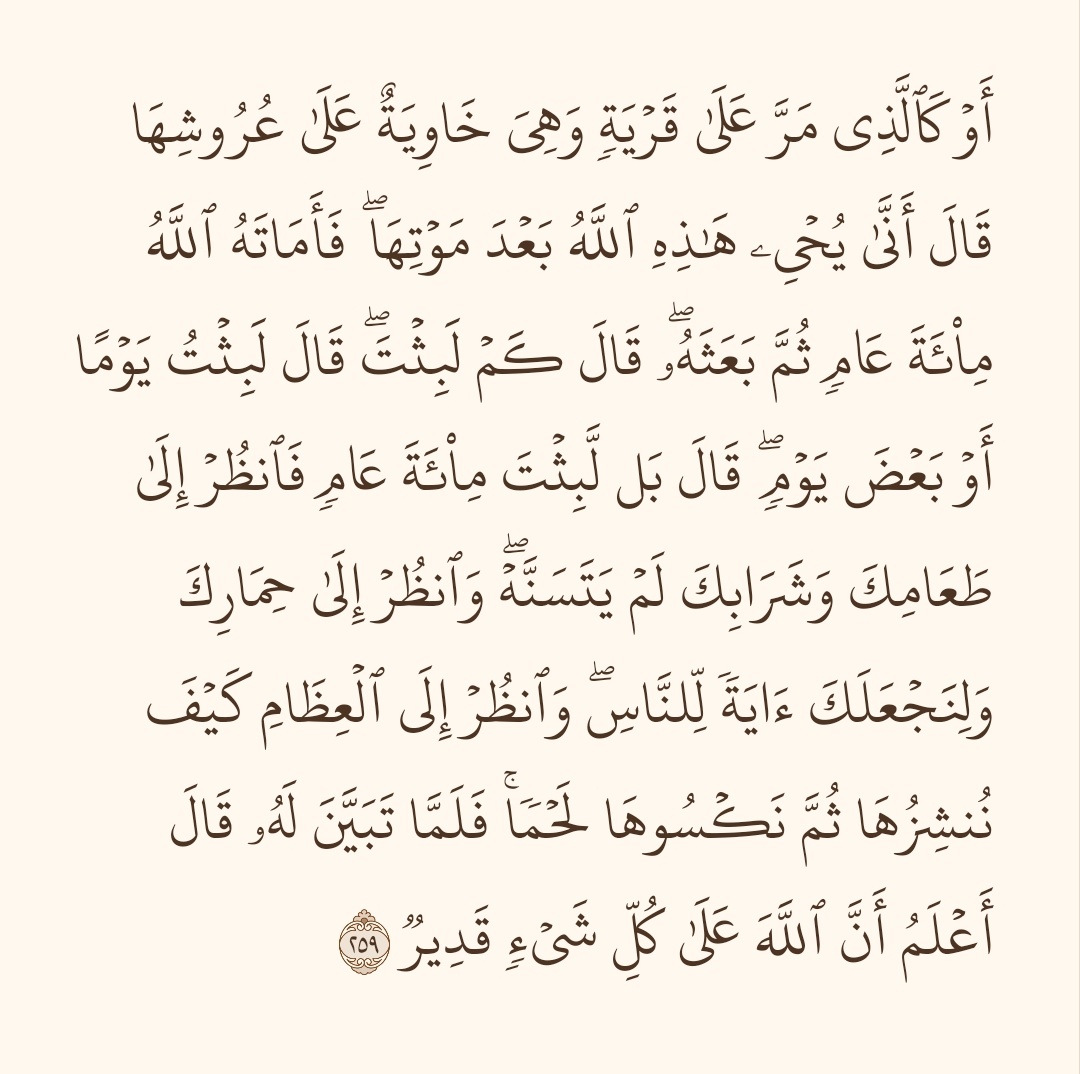 أَوۡ كَٱلَّذِى مَرَّ عَلَىٰ قَرۡيَةٖ وَهِىَ خَاوِيَةٌ عَلَىٰ عُرُوشِهَا
قَالَ أَنَّىٰ يُحۡىِۦ هَـٰذِهِ ٱللَّهُ بَعۡدَ مَوۡتِهَاۖ فَأَمَاتَهُ ٱللَّهُ
مِا۟ئَةَ عَامٖ ثُمَّ بَعَثَهُۥۖ قَالَ كَمۡ لَبِثۡتَۖ قَالَ لَبِثۡتُ يَوۡمًا
أَوۡ بَعۡضَ يَوۡمٖۖ قَالَ بَل لَّبِثۡتَ مِا۟ئَةَ عَامٖ فَٱنظُرۡ إِلَىٰ
طَعَامِكَ وَشَرَابِكَ لَمۡ يَتَسَنَّهۡۖ وَٱنظُرۡ إِلَىٰ حِمَارِكَ
وَلِنَجۡعَلَكَ ءَايَةٗ لِّلنَّاسِۖ وَٱنظُرۡ إِلَى ٱلۡعِظَامِ كَيۡفَ
نُنشِزُهَا ثُمَّ نَكۡسُوهَا لَحۡمٗاۚ فَلَمَّا تَبَيَّنَ لَهُۥ قَالَ
أَعۡلَمُ أَنَّ ٱللَّهَ عَلَىٰ كُلِّ شَىۡءٖ قَدِيرٞ ٢٥٩